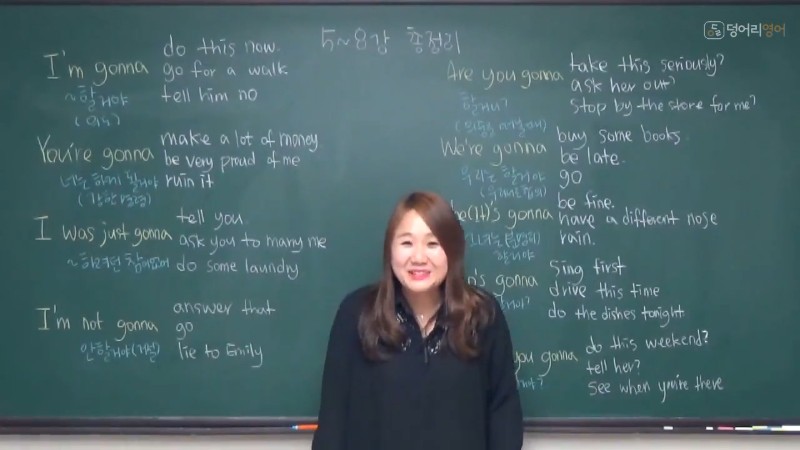 덩어리영어
5~8강 총정리
I'm gonna
do this now.
go for a walk
tell him no
~할거야
You're gonna
make a lot of money.
be very proud of me
ruin it
너는 하게 될거야
I was just gonna
tell you.
ask you to marry me
do some laundry
I'm not gonna
answer that
go
lie to Emily
안할거야
Are you gonna
take this seriously?
ask her out?
stop by the store for me?
할거니?
We're gonna
buy some books.
be late.
go
우리는 할거야
he(It)'s gonna
be fine.
have a different nose
rain.
할거야
's gonna
sing first
drive this time
do the dishes tonight
you gonna
do this weekend?
tell her?
see when you're there